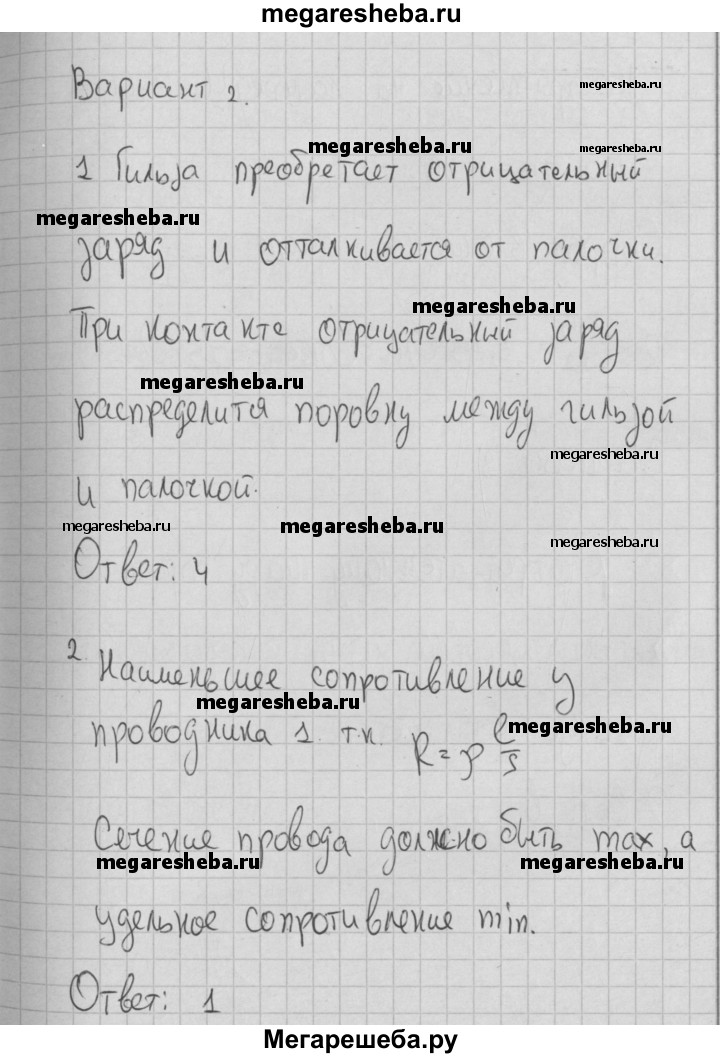 megaresheba.ru
Вариант 2.
megaresheba.ru
megaresheba.ru
megaresheba.ru
1 Гильза преобретает отрицательный
megaresheba.ru
заряд и отталкивается от палочки.
megaresheba.ru
При контакте отрицательный заряд
megaresheba.ru
распределится поровну между гильзой
megaresheba.ru
и палочкой.
megaresheba.ru
megaresheba.ru
megaresheba.ru
Ответ: 4
2. Наименьшее сопротивление у
megaresheba.ru
megaresheba.ru
проводника 1. т.к. R = ρ l/s
Сечение провода должно быть max, а
megaresheba.ru
megaresheba.ru
удельное сопротивление min.
Ответ: 1
Мегарешеба.ру